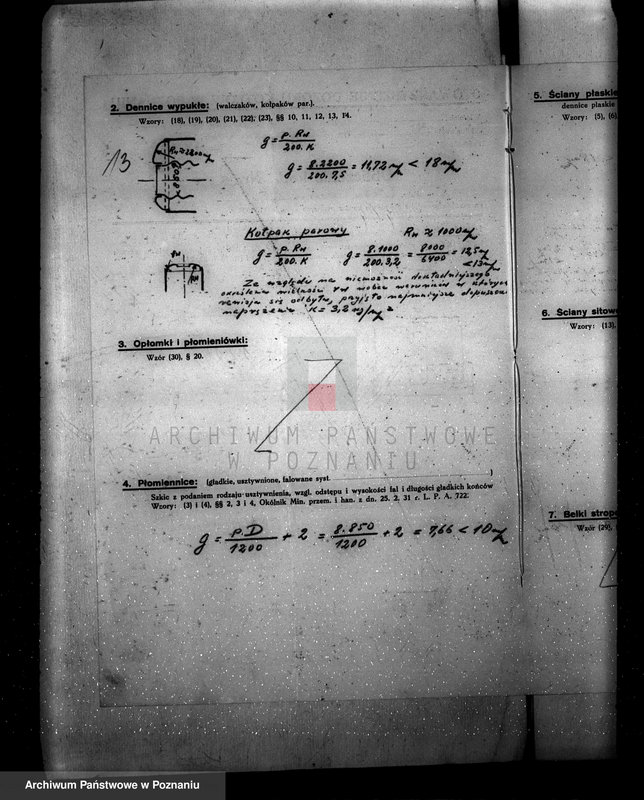 2. Dennice wypukłe: (walczaków, kołpaków par.).
Wzory: (18), (19), (20), (21), (22), (23), §§ 10, 11, 12, 13, 14.
13
g = p.Rн / 200.K
g = 8.2200 / 200.7,5 = 11,72 m/m < 18 m/m
Kołpak parowy
Rн ≈ 1000 m/m
g = p.Rн / 200.K
g = 8.1000 / 200.3,2 = 8000 / 6400 = 12,5 m/m
< 13 m/m
Ze względu na niemożność dokładniejszego
określenia wobec warunków w których
rewizja się odbyła, przyjęto najmniejsze dopuszcz.
naprężenie K = 3,2
3. Opłomki i płomieniówki:
Wzór (30), § 20.
ARCHIWUM PAŃSTWOWE
W POZNANIU
4. Płomiennice: (gładkie, usztywnione, falowane syst. )
Szkic z podaniem rodzaju usztywnienia, wzgl. odstępu i wysokości fal i długości gładkich końców
Wzory: (3) i (4), §§ 2, 3 i 4, Okólnik Min. przem. i han. z dn. 25. 2. 31 r. L. P. A. 722.
g = p.D / 1200 + 2 = 8.850 / 1200 + 2 = 7,66 < 10 m/m
5. Ściany płaskie
dennice płaskie
Wzory: (5), (6)
6. Ściany sitowe
Wzory: (13),
7. Belki strop
Wzór (29),
Archiwum Państwowe w Poznaniu